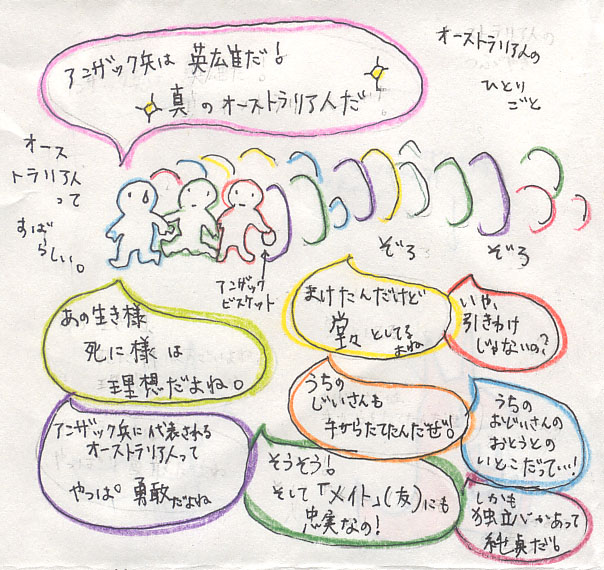 アンザック兵は 英雄だ!
真のオーストラリア人だ
オーストラリア人の
ひとり
ごと
オース
トラリア人
って
すばらしい。
アンザック
ビスケット
ぞろ
ぞろ
あの生き様
死に様は
理想だよね。
まけたんだけど
堂々としてる
よね
いや、
引きわけ
じゃないの?
うちの
じいさんも
手がらたてたんだぜ!
うちの
おじいさんの
おとうとの
いとこだって…!
アンザック兵に代表される
オーストラリア人って
やっぱ勇敢だよね
そうそう!
そして「メイト」(友)にも
忠実なの!
しかも
独立心があって
純真だ!